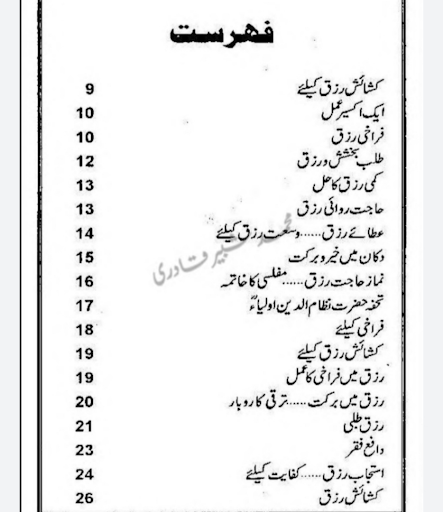 فہرست
کشائش رزق کیلئے 9
ایک اکسیر عمل 10
فراخی رزق 10
طلب بخشش و رزق 12
کمی رزق کا حل 13
حاجت روائی رزق 13
عطائے رزق......وسعت رزق کیلئے 14
دکان میں خیر و برکت 15
نماز حاجت رزق......مفلسی کا خاتمہ 16
تحفہ حضرت نظام الدین اولیاءؒ 17
فراخی کیلئے 18
کشائش رزق کیلئے 19
رزق میں فراخی کا عمل 19
رزق میں برکت......ترقی کاروبار 20
رزق طلبی 21
دافع فقر 23
استجاب رزق......کفایت کیلئے 24
کشائش رزق 26
قادری